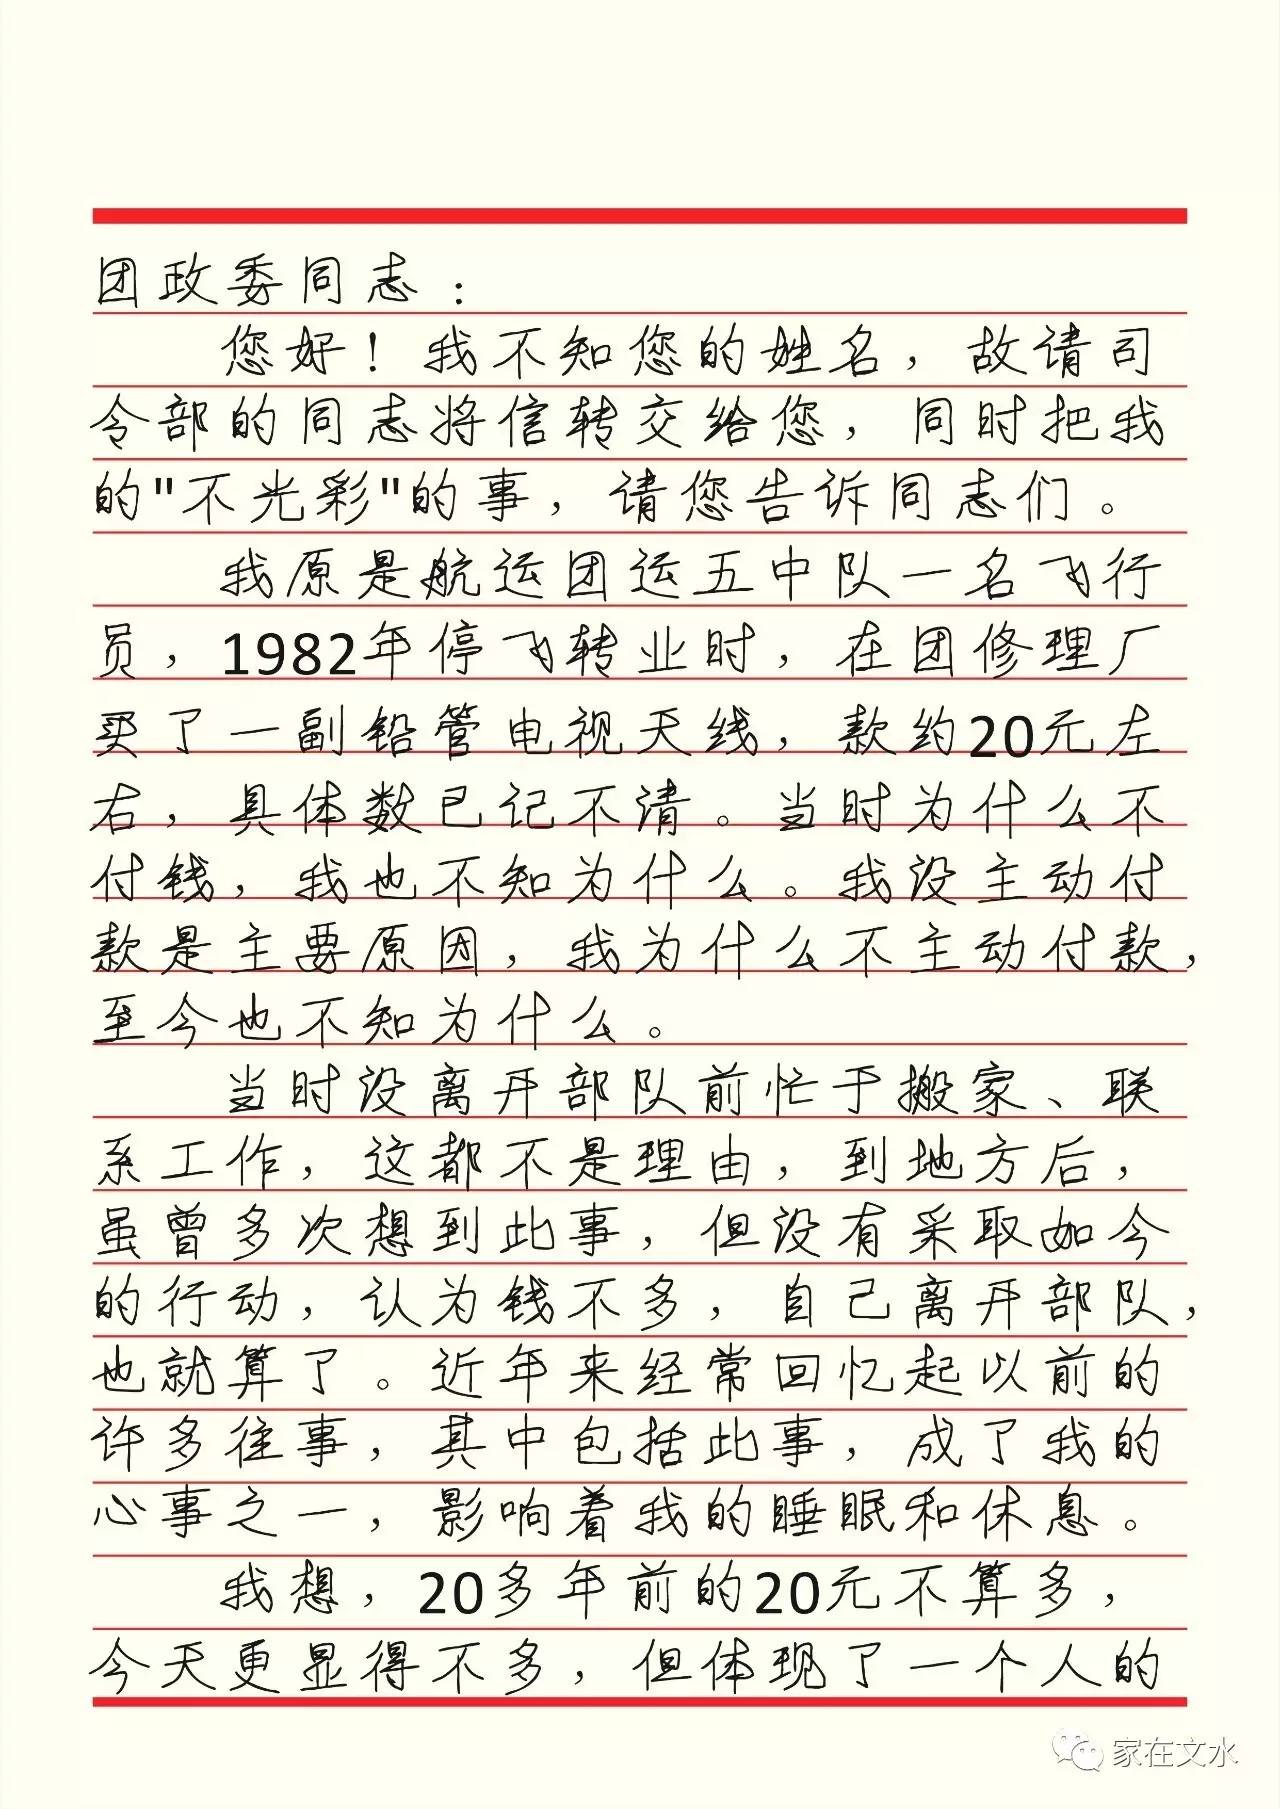 团政委同志：
您好！我不知您的姓名，故请司
令部的同志将信转交给您，同时把我
的"不光彩"的事，请您告诉同志们。
我原是航运团运五中队一名飞行
员，1982年停飞转业时，在团修理厂
买了一副铅管电视天线，款约20元左
右，具体数已记不请。当时为什么不
付钱，我也不知为什么。我设主动付
款是主要原因，我为什么不主动付款，
至今也不知为什么。
当时设离开部队前忙于搬家、联
系工作，这都不是理由，到地方后，
虽曾多次想到此事，但设有采取如今
的行动，认为钱不多，自己离开部队，
也就算了。近年来经常回忆起以前的
许多往事，其中包括此事，成了我的
心事之一，影响着我的睡眠和休息。
我想，20多年前的20元不算多，
今天更显得不多，但体现了一个人的
家在文水